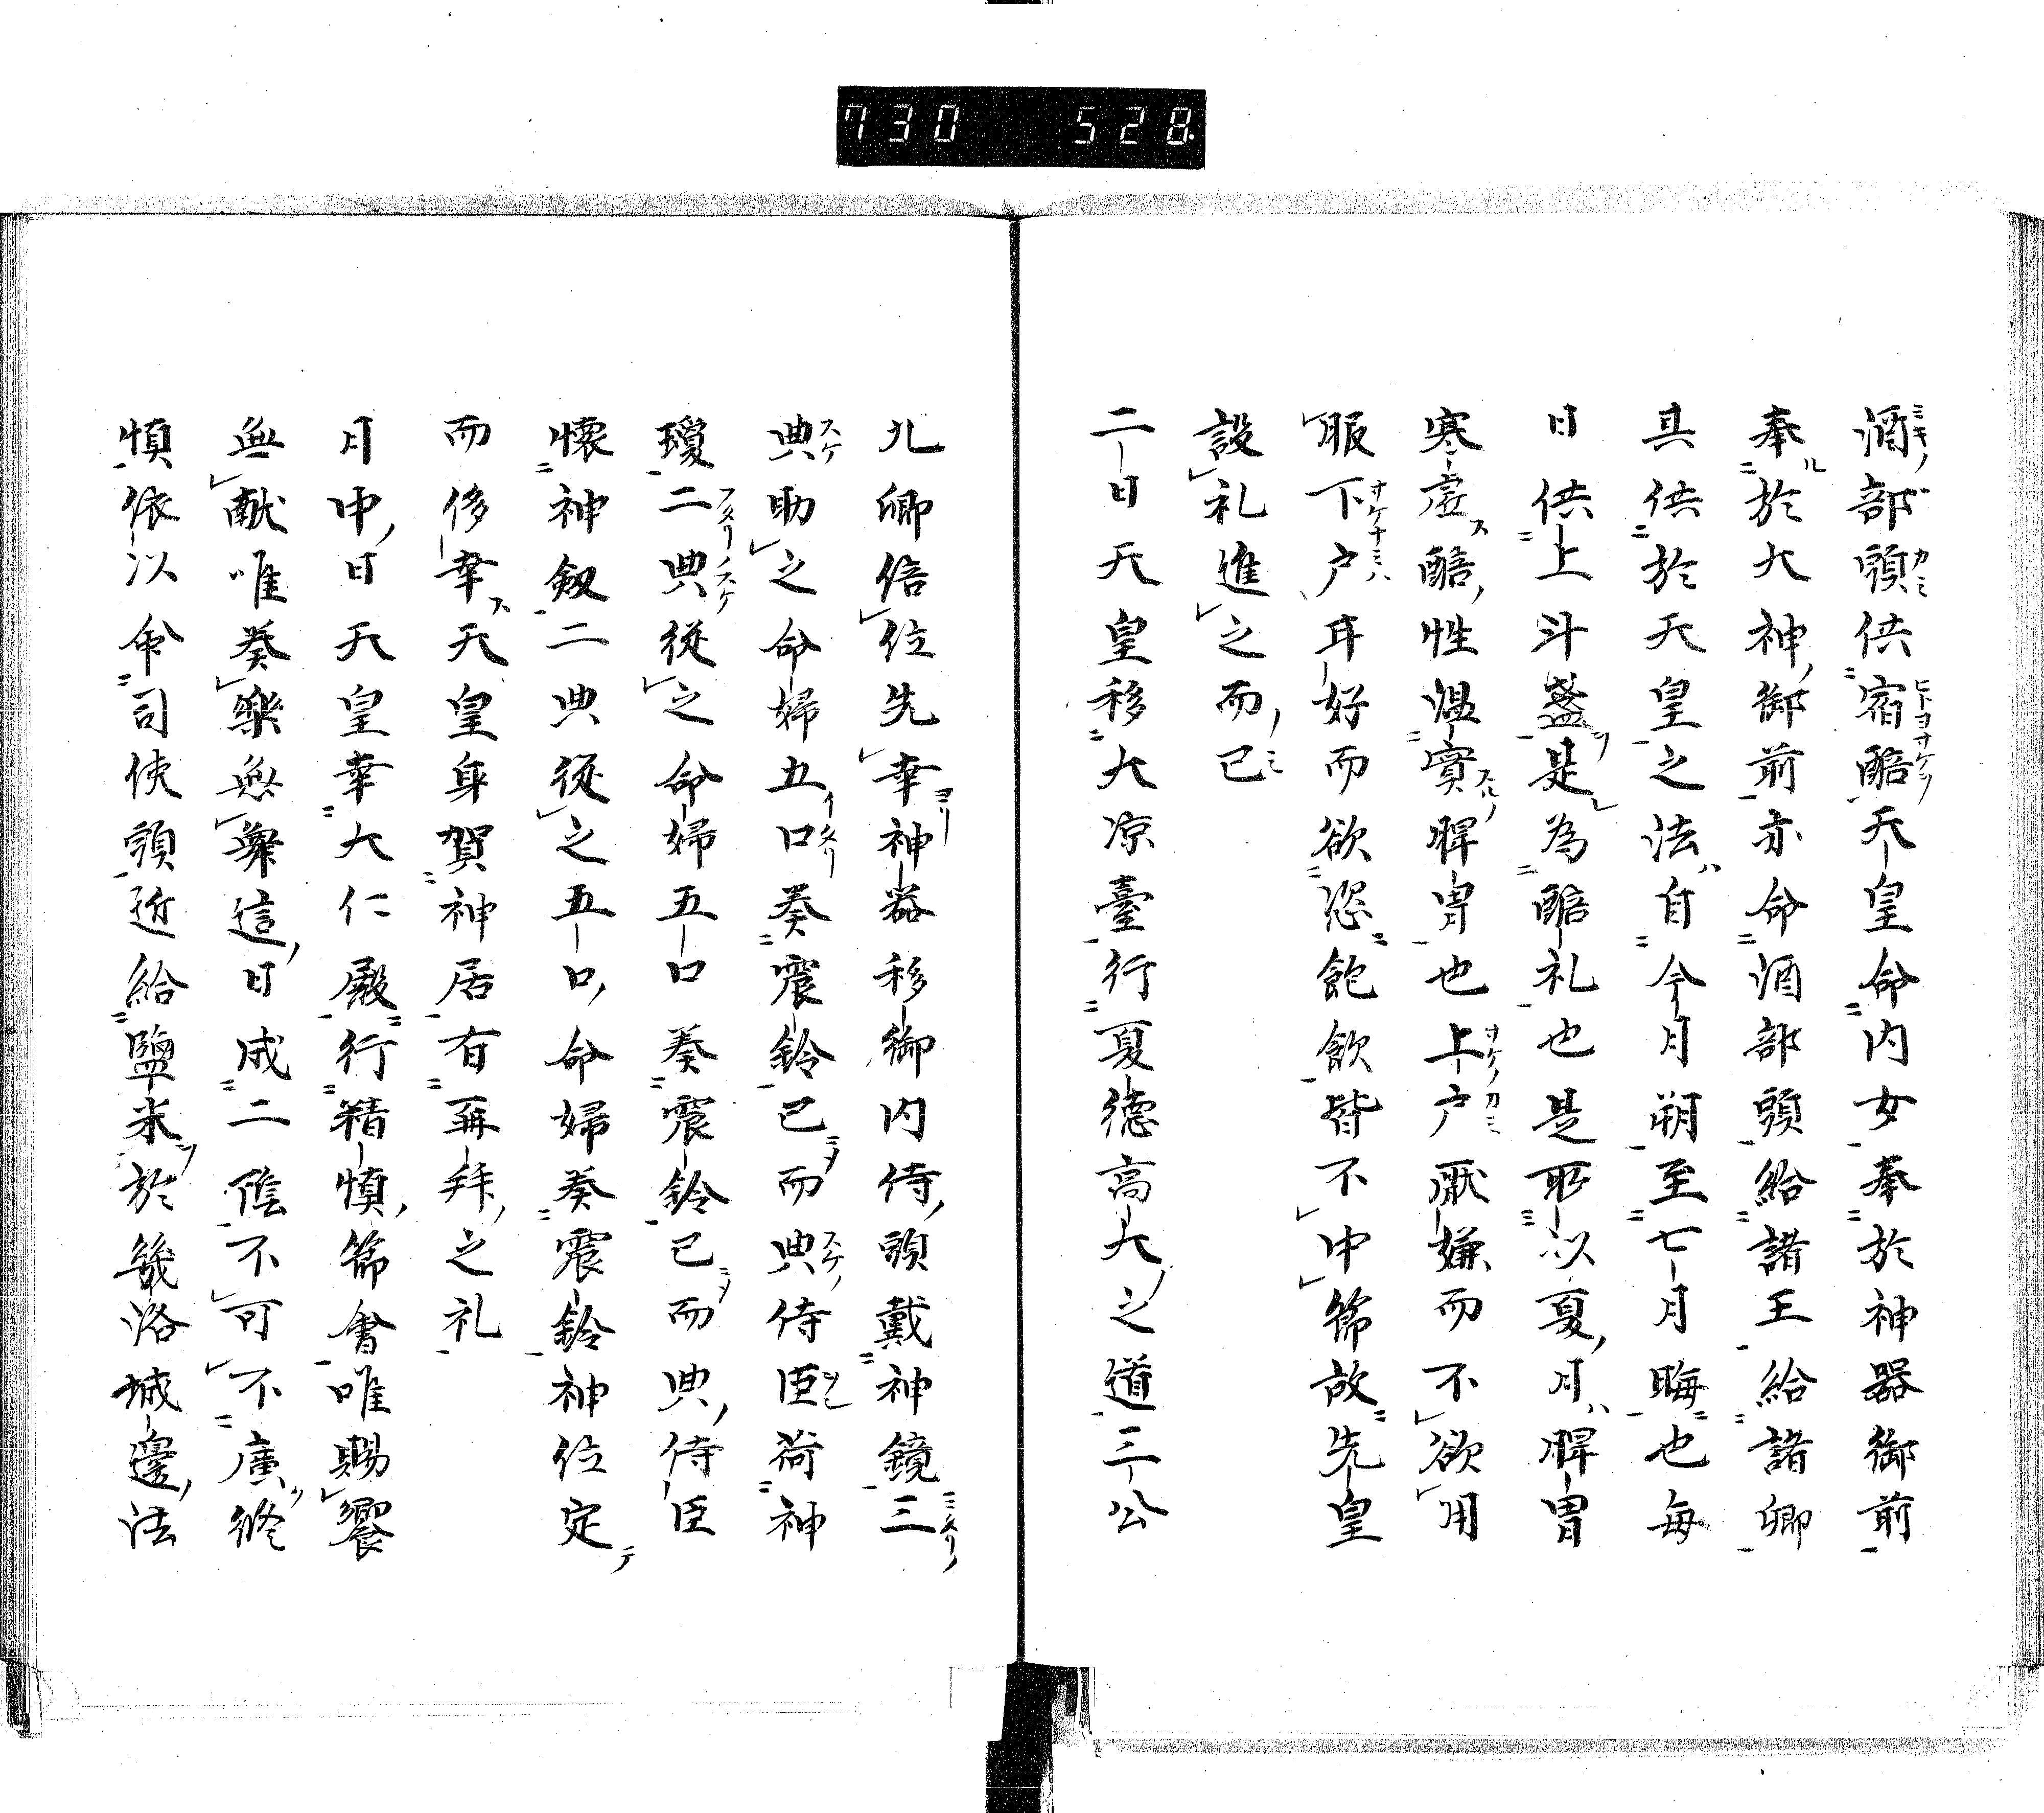 730 528
酒部頭供宿醅天皇命内女奉於神器御前
奉於大神御前亦命酒部頭給諸王給諸卿
其供於天皇之法自今月朔至七月晦也毎
日供上斗盞是為醅礼也是所以夏月脾胃
寒虚醅性温實脾胃也上戸厭嫌而不欲用
服下戸耳好而欲恣飽飲皆不中節故先皇
設礼進之而已
二日天皇移大凉臺行夏徳高大之道三公
九卿倍位先幸神器移御内侍頭戴神鏡三
典助之命婦五口奏震鈴已而典侍臣荷神
瓊二典従之命婦五口奏震鈴已而典侍臣
懐神劔二典従之五口命婦奏震鈴神位定
而侈幸天皇身賀神居有再拜之礼
月中日天皇幸大仁殿行精慎節會唯賜饗
無献唯奏樂無舞這日成二陰不可不廣修
慎依以命司使頭近給鹽米於幾洛城邊法